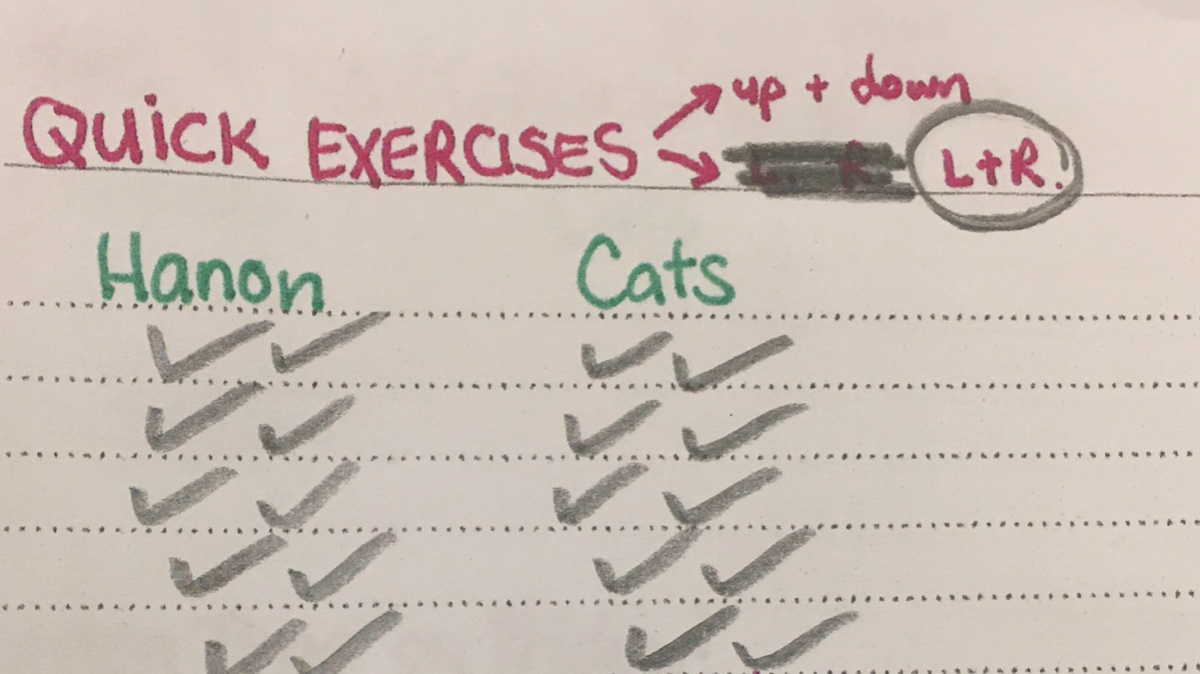 QUICK EXERCISES → up + down
→ L R L+R.
Hanon Cats
✓ ✓ ✓ ✓
✓ ✓ ✓ ✓
✓ ✓ ✓ ✓
✓ ✓ ✓ ✓
✓ ✓ ✓ ✓